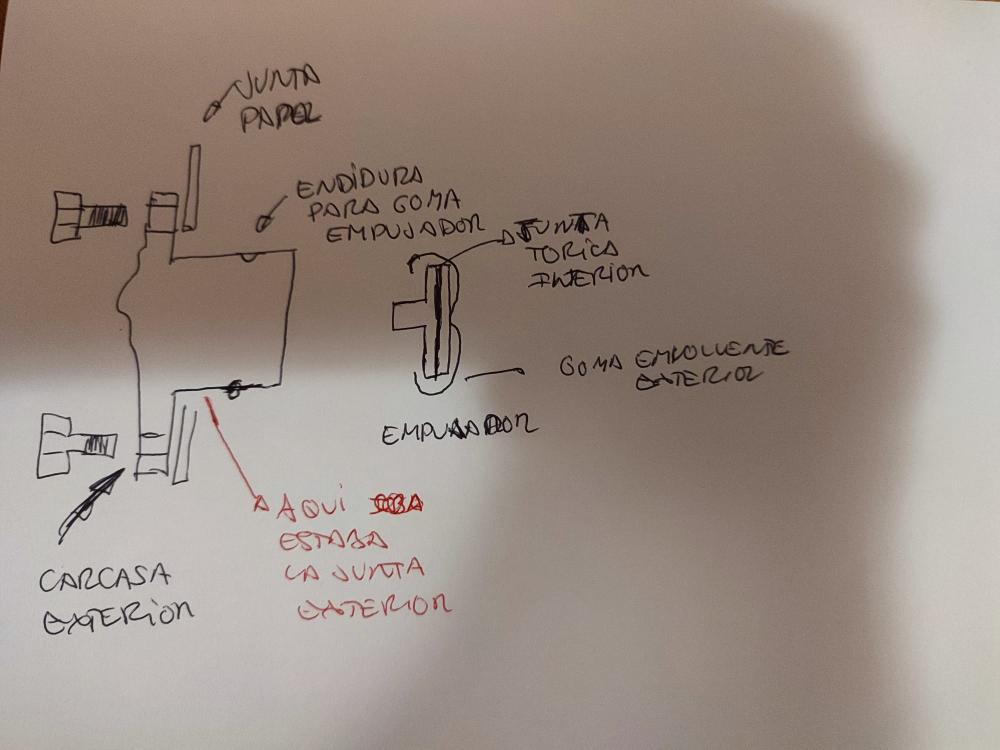 JUNTA
PAPEL
ENDIDURA
PARA GOMA
EMPUJADOR
JUNTA
TORICA
INTERIOR
GOMA ENVOLVENTE
EXTERIOR
EMPUJADOR
AQUI
ESTABA
LA JUNTA
EXTERIOR
CARCASA
EXTERIOR